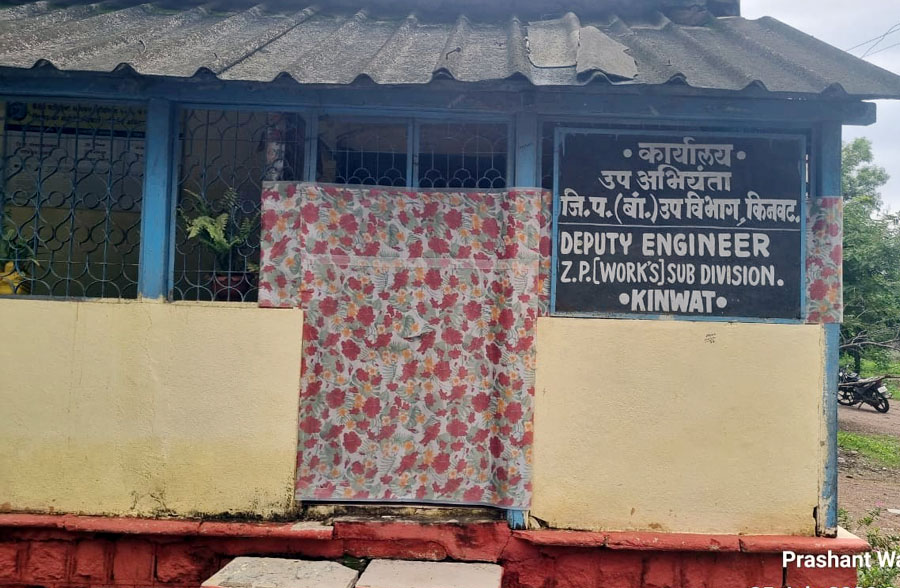 • कार्यालय •
उप अभियंता
जि.प.(बां.) उप विभाग, किनवट.
DEPUTY ENGINEER
Z.P.[WORK'S] SUB DIVISION.
• KINWAT •
Prashant Wa